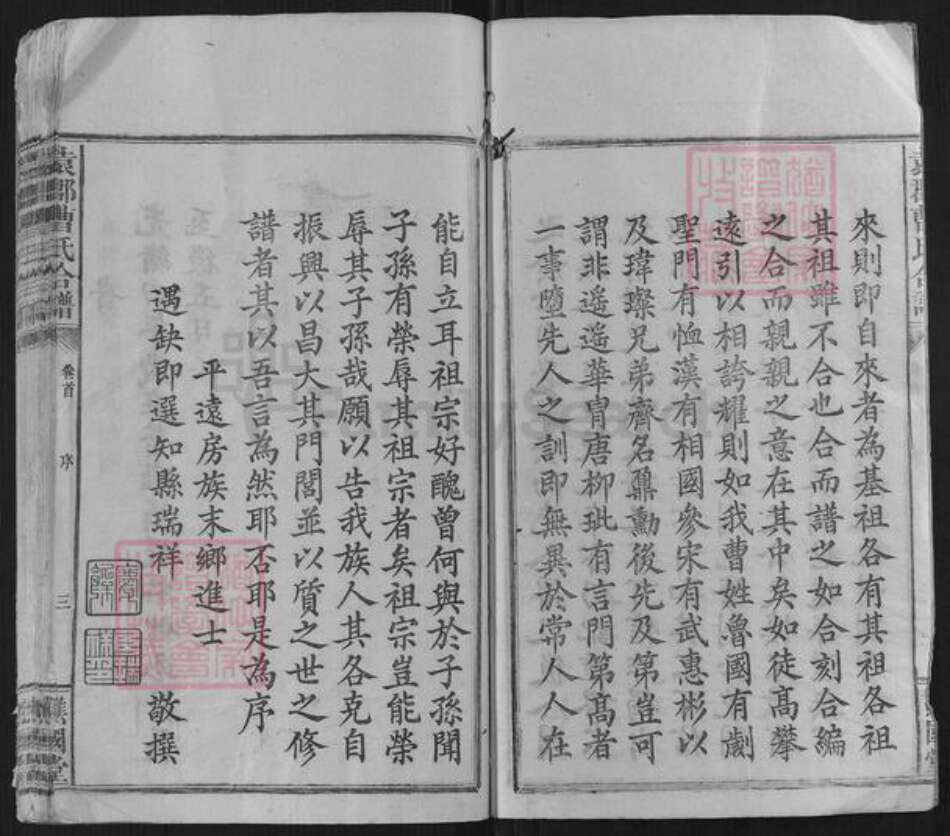 來則即自來者為基祖各有其祖各祖
其祖雖不合也合而譜之如合刻合編
之合而親親之意在其中矣如徒高攀
遠引以相誇耀則如我曹姓魯國有劌
聖門有恤漢有相國參宋有武惠彬以
及瑋璨兄弟齊名鼐勳後先及第豈可
謂非遥遥華胄唐柳玭有言門第高者
一事墮先人之訓即無異於常人人在
能自立耳祖宗好醜曾何與於子孫聞
子孫有榮辱其祖宗者矣祖宗豈能榮
辱其子孫哉願以告我族人其各克自
振興以昌大其門閭並以質之世之修
譜者其以吾言為然耶否耶是為序
平遠房族末鄉進士
遇缺即選知縣瑞祥 敬撰
袁郡曹氏合譜
卷首
序
三